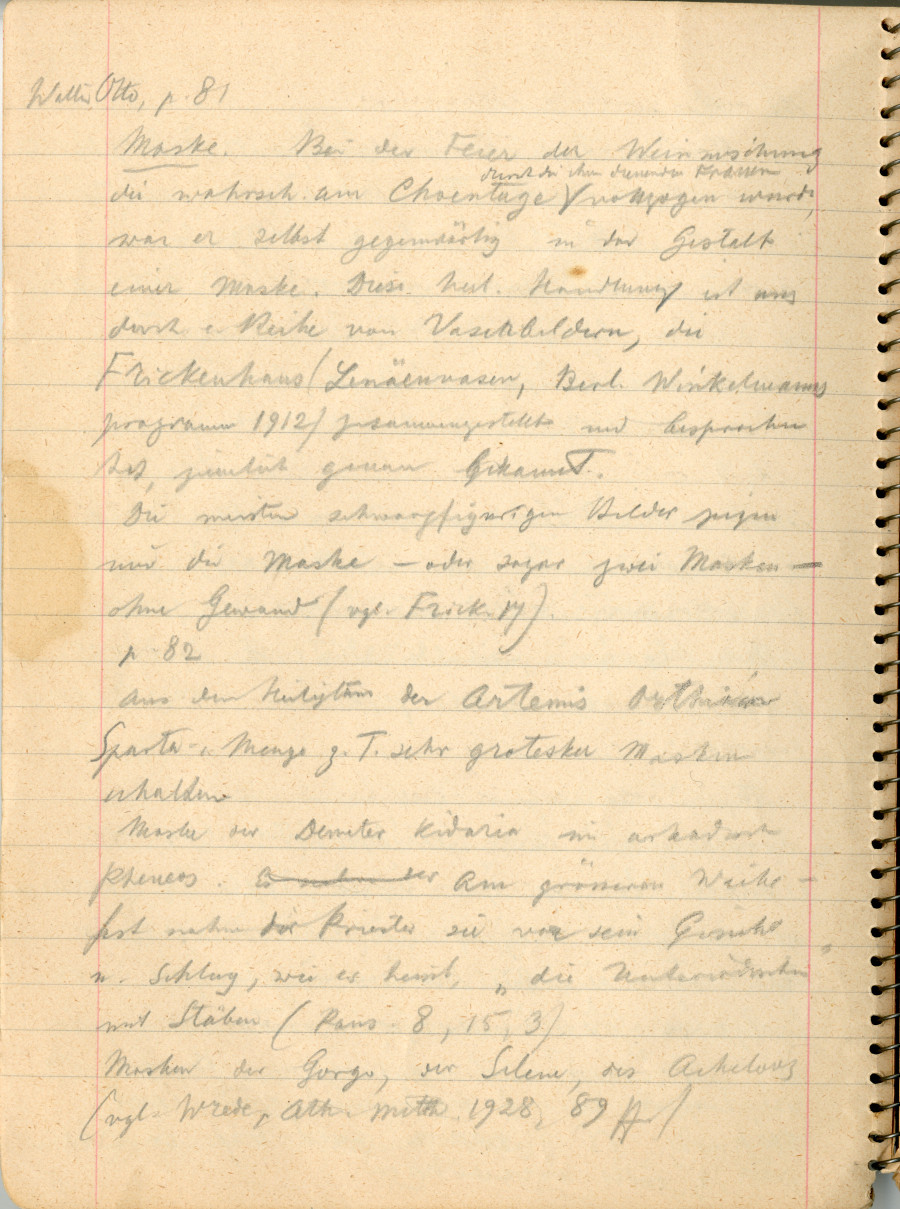 Walter Otto, p. 81
Maske. Bei der Feier der Weinmischung
durch die ihm dienenden Frauen
die wahrsch. am Choentage vollzogen wurde,
war er selbst gegenwärtig in der Gestalt
einer Maske. Diese heil. Handlung ist uns
durch e. Reihe von Vasenbildern, die
Frickenhaus (Lenäenvasen, Berl. Winkelmanns
programm 1912) zusammengestellt und besprochen
hat, ziemlich genau bekannt.
Die meisten schwarzfigurigen Bilder zeigen
nur die Maske – oder sogar zwei Masken –
ohne Gewand (vgl. Frick. 17).
p. 82
Aus dem Heiligtum der Artemis Orthia in
Sparta e. Menge z. T. sehr grotesker Masken
erhalten
Maske der Demeter Kidaria im arkadischen
Pheneos. Er nahm der Am grösseren Weihe-
fest nahm der Priester sie vor sein Gesicht
u. schlug, wie es heisst, „die Unterirdischen"
mit Stäben (Paus. 8, 15, 3)
Masken der Gorgo, der Silene, des Acheloos
(vgl. Wrede, Ath. Mitth. 1928, 89 ff)